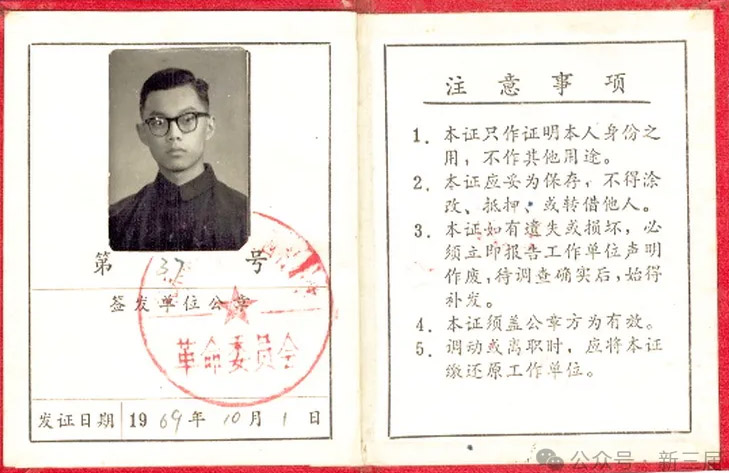 第 号
签发单位公章
革命委员会
发证日期 1969年10月1日
注意事项
1. 本证只作证明本人身份之
用，不作其他用途。
2. 本证应妥为保存，不得涂
改、抵押、或转借他人。
3. 本证如有遗失或损坏，必
须立即报告工作单位声明
作废，待调查确实后，始得
补发。
4. 本证须盖公章方为有效。
5. 调动或离职时，应将本证
缴还原工作单位。
公众号·新三届